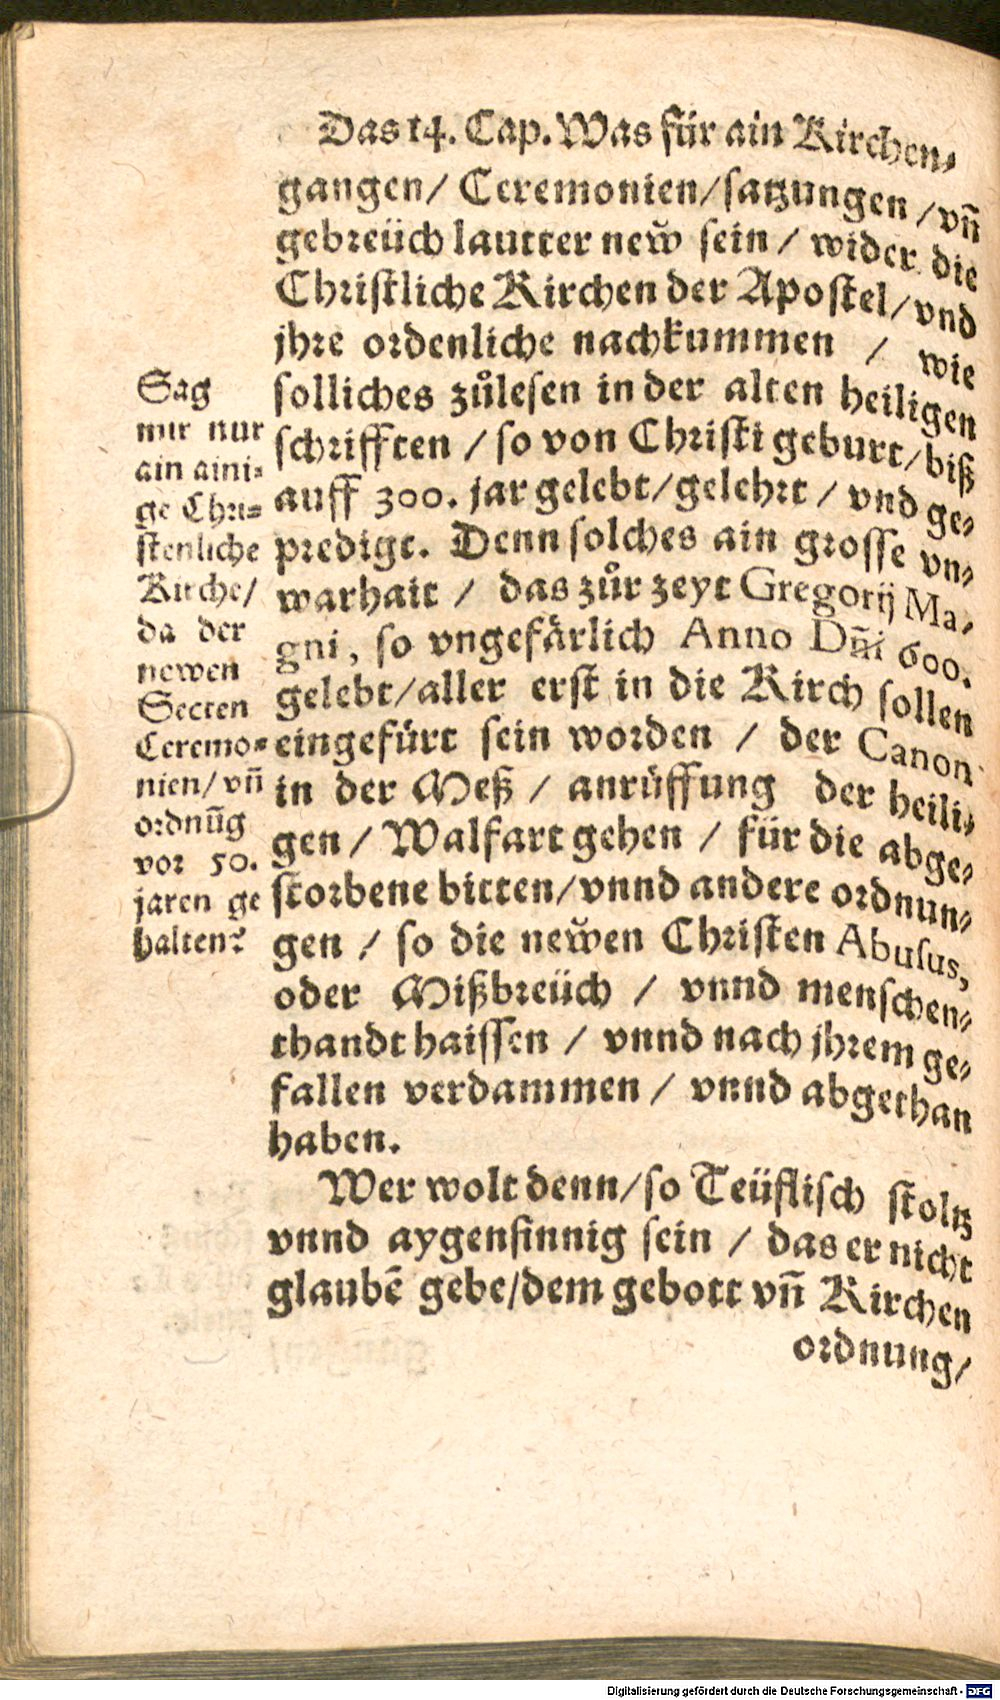 Das 14. Cap. Was für ain Kirchen-
gangen/ Ceremonien/ satzungen /vñ
gebreüch lautter new̆ sein / wider die
Christliche Kirchen der Apostel/ vnd
jhre ordenliche nachkummen / wie
solliches zůlesen in der alten heiligen
schrifften / so von Christi geburt/ biß
auff 300. jar gelebt/ gelehrt / vnd ge-
predigt. Denn solches ain grosse vn-
warhait / das zůr zeyt Gregorij Ma-
gni, so vngefärlich Anno Dñi 600.
gelebt/ aller erst in die Kirch sollen
eingefürt sein worden / der Canon
in der Meß / anrüffung der heili-
gen / Walfart gehen / für die abge-
storbene bitten/ vnnd andere ordnun-
gen / so die new̆en Christen Abusus,
oder Mißbreüch / vnnd menschen-
thandt haissen / vnnd nach jhrem ge-
fallen verdammen / vnnd abgethan
haben.
Wer wolt denn/ so Teüflisch stoltz
vnnd aygensinnig sein / das er nicht
glaubē gebe/ dem gebott vñ Kirchen
ordnung/
Sag
mir nur
ain aini-
ge Chri-
stenliche
Kirche/
da der
newen
Secten
Ceremo-
nien/ vñ
ordnūg
vor 50.
jaren ge
halten?
Digitalisierung gefördert durch die Deutsche Forschungsgemeinschaft - DFG